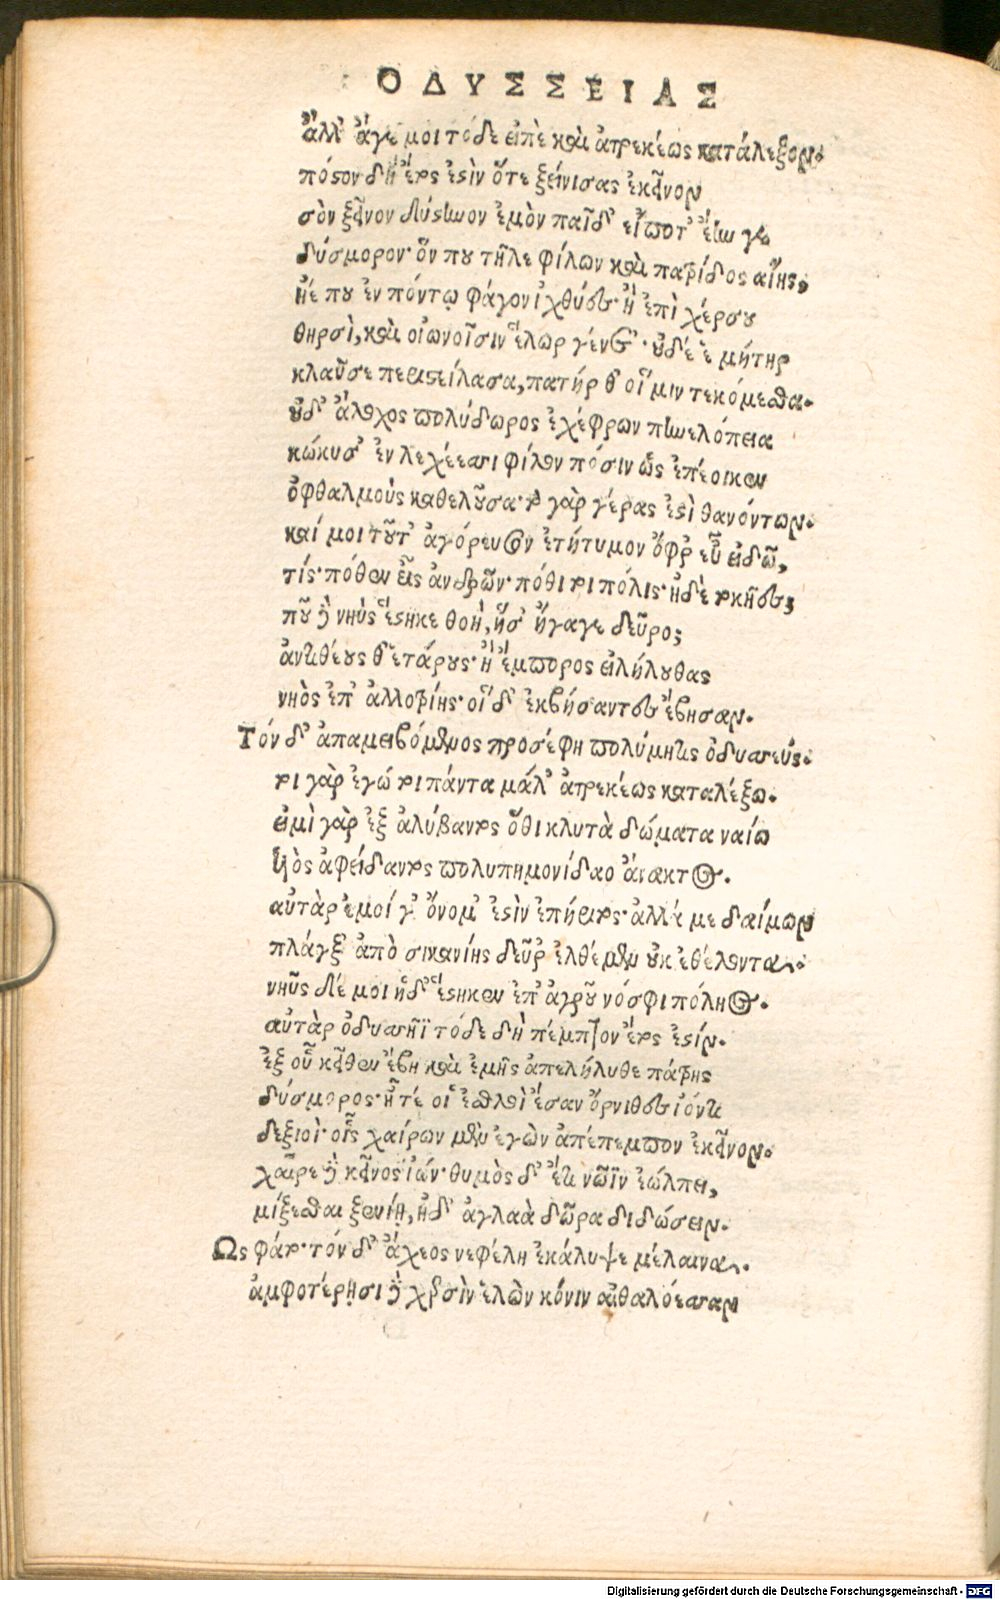 ΟΔΥΣΣΕΙΑΣ
ἀλλ' ἄγε μοι τόδε εἰπὲ καὶ ἀτρεκέως κατάλεξον.
πόστον δὴ ἔτος ἐστὶν ὅτε ξείνισας ἐκεῖνον
σὸν ξεῖνον δύστηνον ἐμὸν παῖδ' εἴποτ' ἔην γε
δύσμορον· ὅν που τῆλε φίλων καὶ πατρίδος αἴης,
ἠέ που ἐν πόντῳ φάγον ἰχθύες· ἢ ἐπὶ χέρσου
θηρσὶ, καὶ οἰωνοῖσιν ἕλωρ γένετ'· οὐδέ ἑ μήτηρ
κλαῦσε περιστείλασα, πατήρ θ' οἵ μιν τεκόμεσθα.
οὐδ' ἄλοχος πολύδωρος ἐχέφρων πηνελόπεια
κώκυσ' ἐν λεχέεσσι φίλον πόσιν ὡς ἐπέοικεν
ὀφθαλμοὺς καθελοῦσα· τὸ γὰρ γέρας ἐστὶ θανόντων.
καί μοι τοῦτ' ἀγόρευσον ἐτήτυμον ὄφρ' εὖ εἰδῶ,
τίς· πόθεν εἷς ἀνδρῶν· πόθι τοι πόλις· ἠδὲ τοκῆες;
ποῦ δὲ νηῦς ἕστηκε θοὴ, ἥσ' ἤγαγε δεῦρο;
ἀντιθέους θ' ἑτάρους· ἢ ἔμπορος εἰλήλουθας
νηὸς ἐπ' ἀλλοτρίης· οἵ δ' ἐκβήσαντες ἔβησαν.
Τόν δ' ἀπαμειβόμενος προσέφη πολύμητις ὀδυσσεύς.
τοι γὰρ ἐγώ τοι πάντα μάλ' ἀτρεκέως καταλέξω.
εἰμὶ γὰρ ἐξ ἀλύβαντος ὅθι κλυτὰ δώματα ναίω
ὑιὸς ἀφείδαντος πολυπημονίδαο ἄνακτος.
αὐτὰρ ἐμοί γ' ὄνομ' ἐστὶν ἐπήριτος· ἀλλά με δαίμων
πλάγξ' ἀπὸ σικανίης δεῦρ' ἐλθέμεν οὐκ ἐθέλοντα.
νηῦς δέ μοι ἥδ' ἕστηκεν ἐπ' ἀγροῦ νόσφι πόληος.
αὐτὰρ ὀδυσσῆϊ τόδε δὴ πέμπτον ἔτος ἐστίν.
ἐξ οὗ κεῖθεν ἔβη καὶ ἐμῆς ἀπελήλυθε πάτρης
δύσμορος· ἦ τέ οἱ ἐσθλοὶ ἔσαν ὄρνιθες ἰόντι
δεξιοὶ· οἷς χαίρων μὲν ἐγὼν ἀπέπεμπον ἐκεῖνον.
χαῖρε δὲ κεῖνος ἰών· θυμὸς δ' ἔτι νῶϊν ἐώλπει,
μίξεσθαι ξενίῃ, ἠδ' ἀγλαὰ δῶρα διδώσειν.
Ως φάτο· τόν δ' ἄχεος νεφέλη ἐκάλυψε μέλαινα.
ἀμφοτέρῃσι δὲ χερσὶν ἑλὼν κόνιν αἰθαλόεσσαν
Digitalisierung gefördert durch die Deutsche Forschungsgemeinschaft - DFG